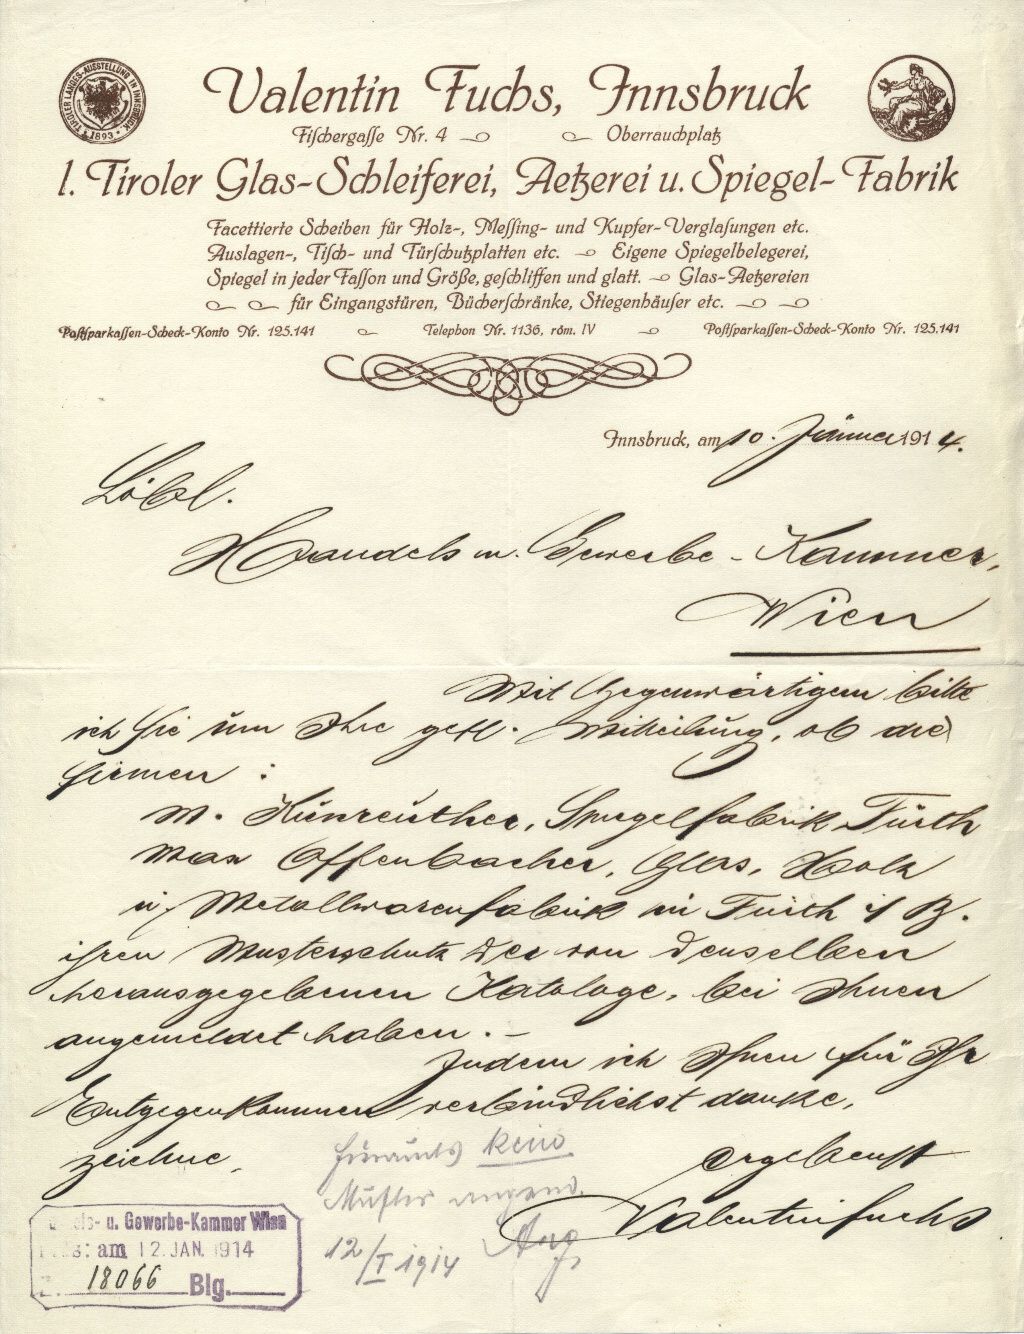 TIROLER LANDES-AUSSTELLUNG IN INNSBRUCK
1893
Valentin Fuchs, Innsbruck
Fischergasse Nr. 4 Oberrauchplatz
1. Tiroler Glas-Schleiferei, Aetzerei u. Spiegel-Fabrik
Facettierte Scheiben für Holz-, Messing- und Kupfer-Verglasungen etc.
Auslagen-, Tisch- und Türschutzplatten etc. Eigene Spiegelbelegerei,
Spiegel in jeder Fasson und Größe, geschliffen und glatt. Glas-Aetzereien
für Eingangstüren, Bücherschränke, Stiegenhäuser etc.
Postsparkassen-Scheck-Konto Nr. 125.141 Telephon Nr. 1136, röm. IV Postsparkassen-Scheck-Konto Nr. 125.141
Innsbruck, am 10. Jänner 1914.
Löbl.
Handels u. Gewerbe-Kammer,
Wien
Mit Gegenwärtigem bitte
ich Sie um Ihre gefl. Mitteilung, ob die
Firmen :
M. Künreuther, Spiegelfabrik Fürth
Max Offenbacher, Glas, Holz
u. Metallwarenfabrik in Fürth i/ B.
ihren Musterschutz der von denselben
herausgegebenen Kataloge, bei Ihnen
angemeldet haben. –
Indem ich Ihnen für Ihr
Entgegenkommen verbindlichst danke,
zeichne,
ergebenst
Valentin Fuchs
keine
Muster angem.
12/I 1914
Handels- u. Gewerbe-Kammer Wien
am 12. JAN. 1914
Z. 18066 Blg.